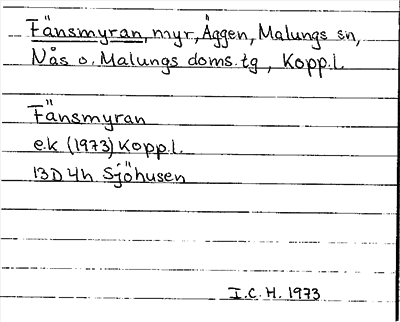 Fänsmyran, myr, Äggen, Malungs sn,
Nås o. Malungs doms.tg, Kopp.l.
Fänsmyran
e.k (1973) Kopp.l.
13D 4h Sjöhusen
I.C.H. 1973